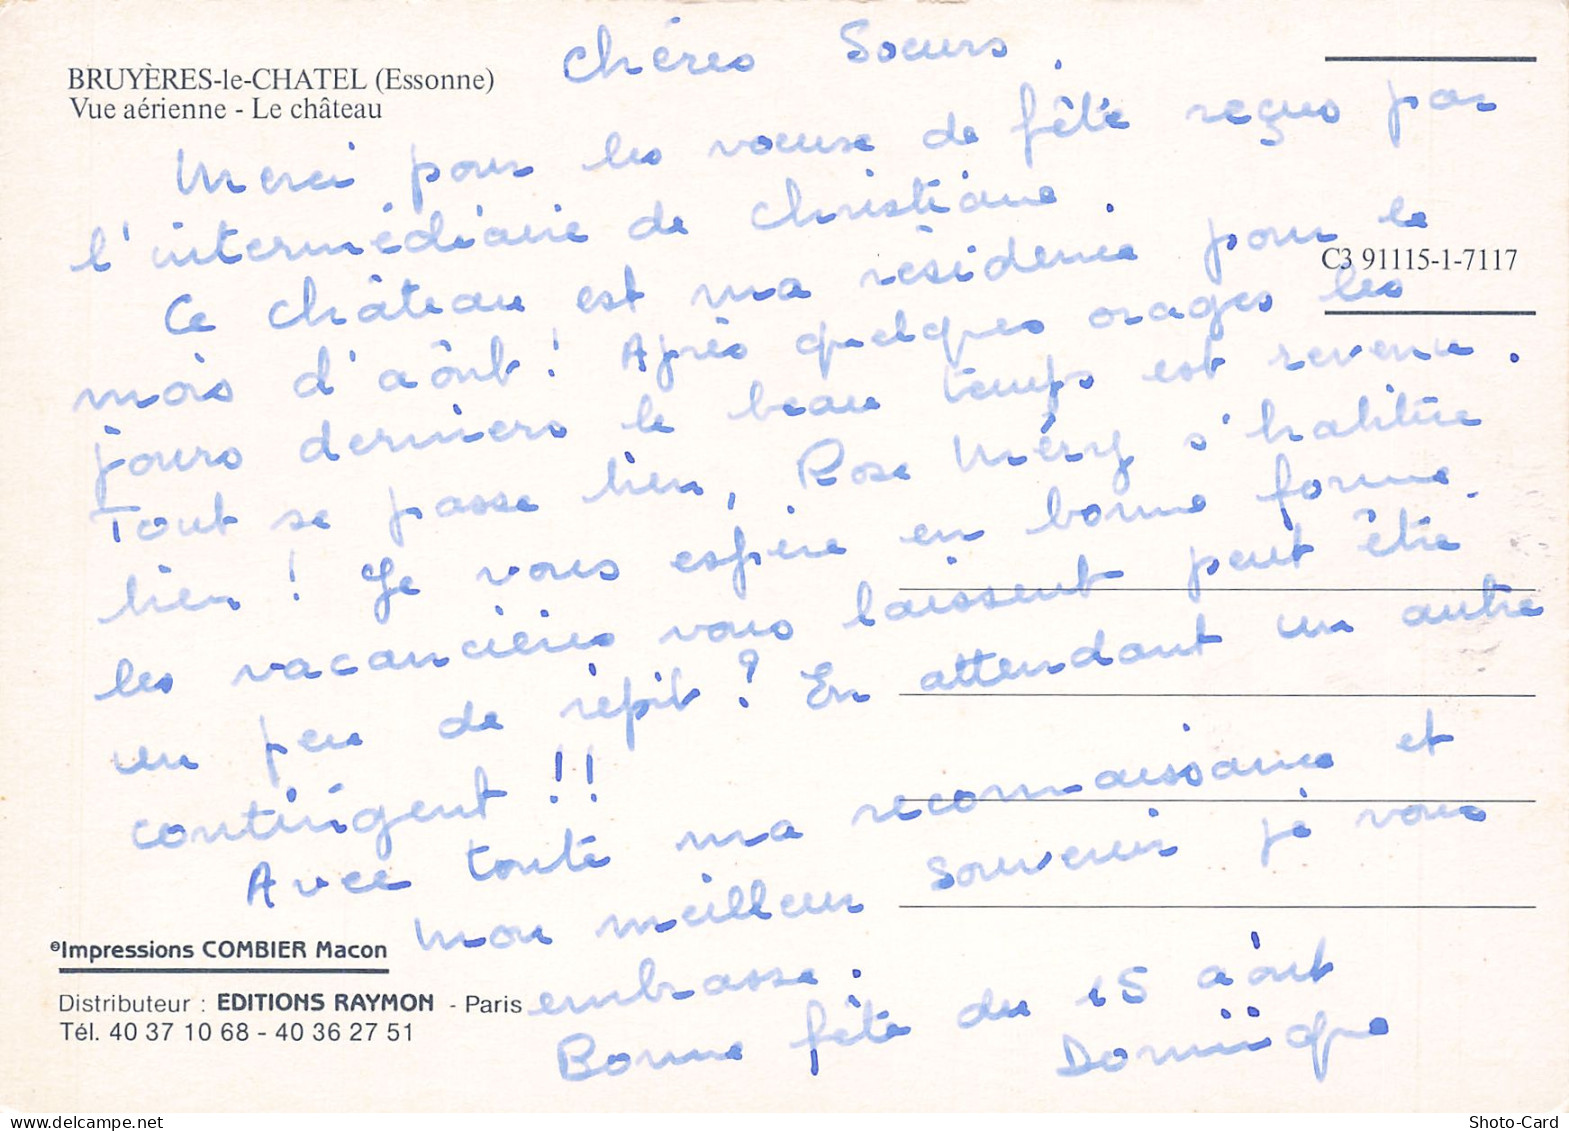 BRUYÈRES-le-CHATEL (Essonne)
Vue aérienne - Le château
C3 91115-1-7117
Chéres Soeurs.
Merci pour les voeux de fête reçus par
l'intermédiaire de Christiane.
Ce château est ma résidence pour le
mois d'aôut! Après quelques orages les
jours derniers le beau temps est revenu.
Tout se passe bien, Rose Méry s'habitue
bien! Je vous espère en bonne forme.
les vacancières vous laissent peut être
un peu de répit? En attendant un autre
contingent!!
Avec toute ma reconnaissance et
mon meilleur souvenir je vous
embrasse.
Bonne fête du 15 aôut
Dominique
©Impressions COMBIER Macon
Distributeur : EDITIONS RAYMON - Paris
Tél. 40 37 10 68 - 40 36 27 51
Shoto-Card